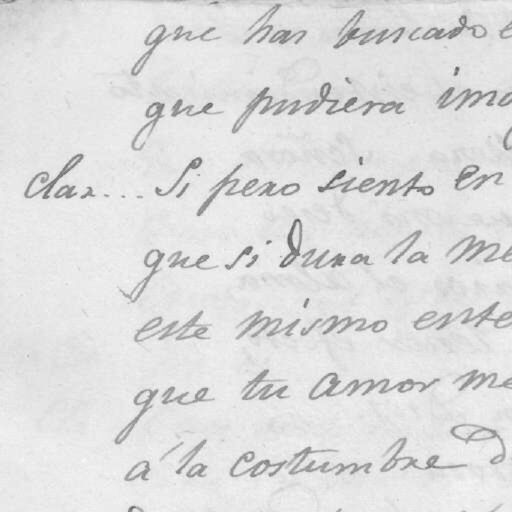 que has buscado
que pudiera
clar... Si pero siento en
que si dura la
este mismo
que tu amor
á la costumbre